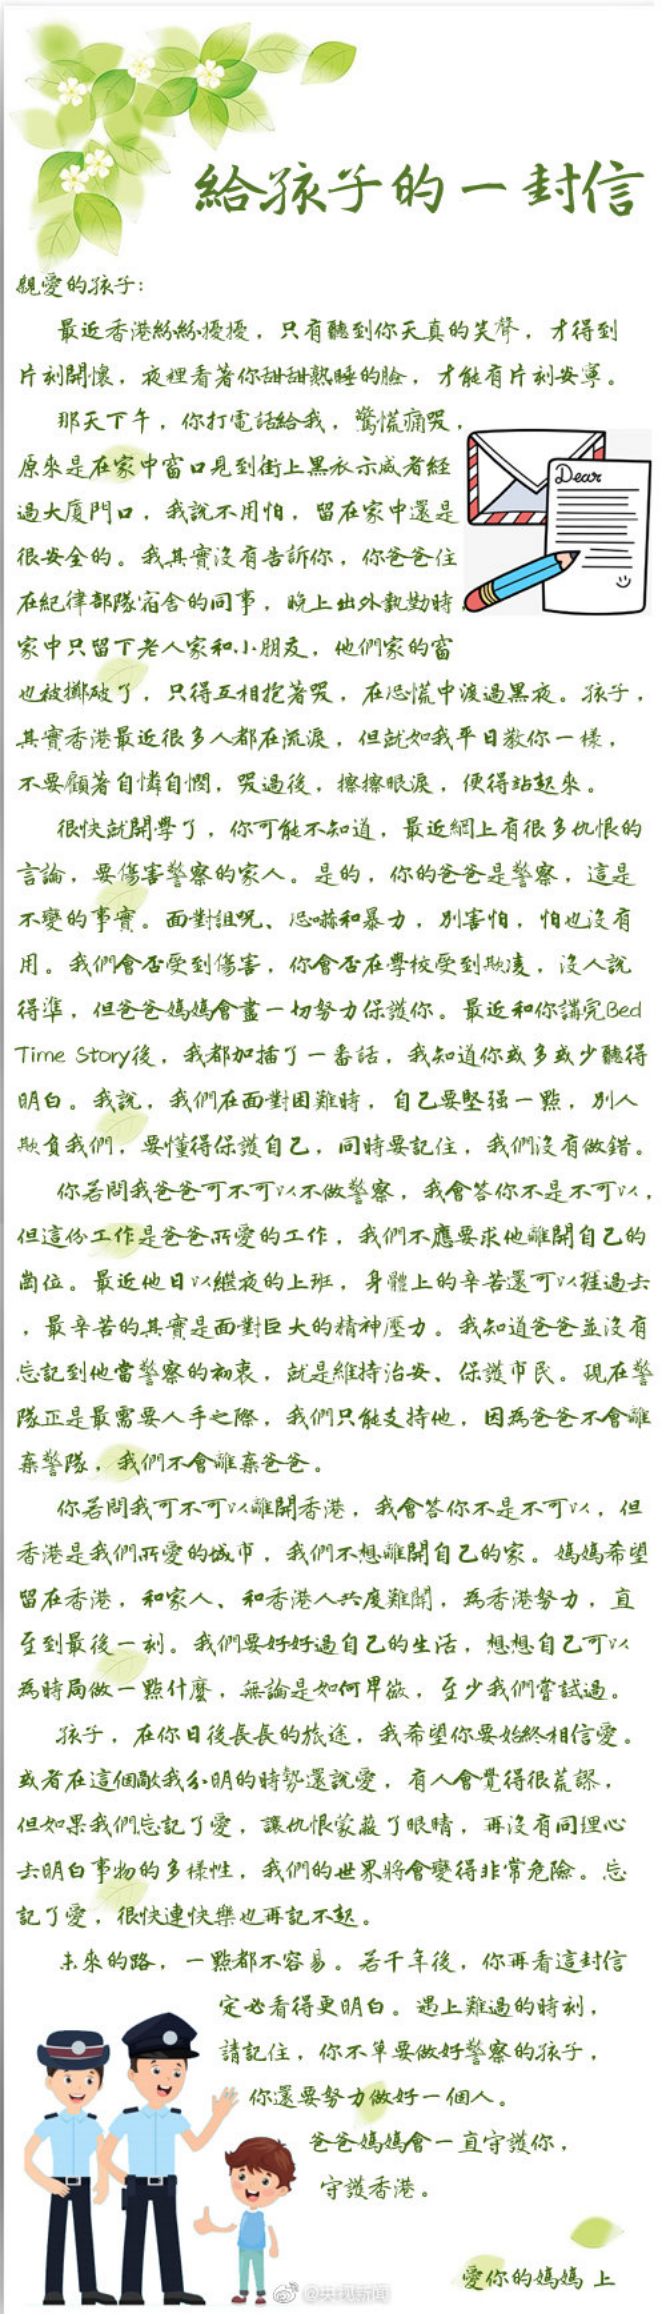 給孩子的一封信
親愛的孩子：
最近香港紛紛擾擾，只有聽到你天真的笑聲，才得到
片刻開懷，夜裡看著你甜甜熟睡的臉，才能有片刻安寧。
那天下午，你打電話給我，驚慌痛哭，
原來是在家中窗口見到街上黑衣示威者經
過大廈門口，我說不用怕，留在家中還是
很安全的。我其實沒有告訴你，你爸爸住
在紀律部隊宿舍的同事，晚上出外執勤時，
家中只留下老人家和小朋友，他們家的窗
也被擲破了，只得互相抱著哭，在恐慌中渡過黑夜。孩子，
其實香港最近很多人都在流淚，但就如我平日教你一樣，
不要顧著自憐自憫，哭過後，擦擦眼淚，便得站起來。
很快就開學了，你可能不知道，最近網上有很多仇恨的
言論，要傷害警察的家人。是的，你的爸爸是警察，這是
不變的事實。面對詛咒、恐嚇和暴力，別害怕，怕也沒有
用。我們會否受到傷害，你會否在學校受到欺凌，沒人說
得準，但爸爸媽媽會盡一切努力保護你。最近和你講完Bed
Time Story後，我都加插了一番話，我知道你或多或少聽得
明白。我說，我們在面對困難時，自己要堅强一點，別人
欺負我們，要懂得保護自己，同時要記住，我們沒有做錯。
你若問我爸爸可不可以不做警察，我會答你不是不可以，
但這份工作是爸爸所愛的工作，我們不應要求他離開自己的
崗位。最近他日以繼夜的上班，身體上的辛苦還可以捱過去
，最辛苦的其實是面對巨大的精神壓力。我知道爸爸並沒有
忘記到他當警察的初衷，就是維持治安、保護市民。現在警
隊正是最需要人手之際，我們只能支持他，因為爸爸不會離
棄警隊，我們不會離棄爸爸。
你若問我可不可以離開香港，我會答你不是不可以，但
香港是我們所愛的城市，我們不想離開自己的家。媽媽希望
留在香港，和家人、和香港人共度難關，為香港努力，直
至到最後一刻。我們要好好過自己的生活，想想自己可以
為時局做一點什麼，無論是如何卑微，至少我們嘗試過。
孩子，在你日後長長的旅途，我希望你要始終相信愛。
或者在這個敵我分明的時勢還說愛，有人會覺得很荒謬，
但如果我們忘記了愛，讓仇恨蒙蔽了眼睛，再沒有同理心
去明白事物的多樣性，我們的世界將會變得非常危險。忘
記了愛，很快連快樂也再記不起。
未來的路，一點都不容易。若干年後，你再看這封信
定必看得更明白。遇上難過的時刻，
請記住，你不單要做好警察的孩子，
你還要努力做好一個人。
爸爸媽媽會一直守護你，
守護香港。
愛你的媽媽 上
Dear
@央视新闻